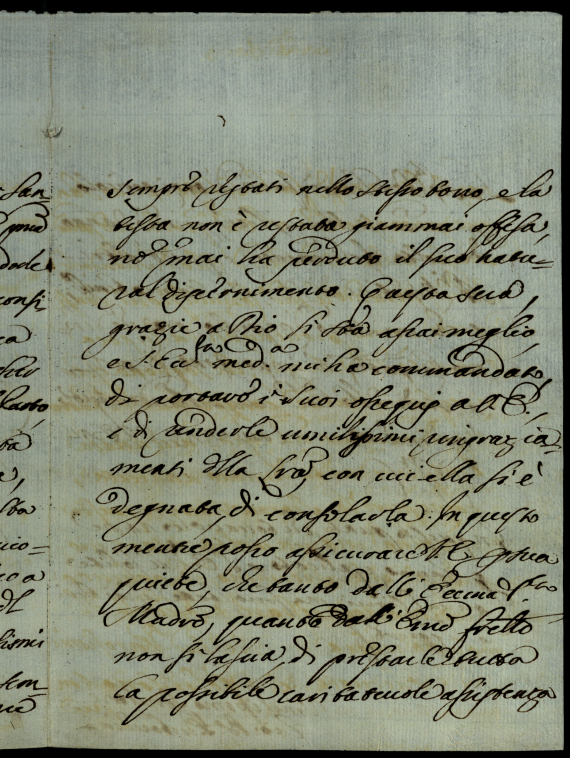 sempre restati nello stesso tono, e la
testa non è restata giammai offesa,
nè mai ha perduto il suo natu=
ral discernimento. Questa sera,
grazie a Dio si stà assai meglio,
e S. Ecc.za med.a mi ha commandato,
di portare i suoi ossequj a V. E.,
e di renderle umilissimi ringrazia=
menti della con cui ella si è
degnata, di consolarla. In questo
mentre posso assicurare V. E.
quiete, che tanto dalla Ecc.ma Sig.ra
Madre, quanto dall' Emo frello
non si lascia, di prestarle tutta
la possibile caritatevole assistenza